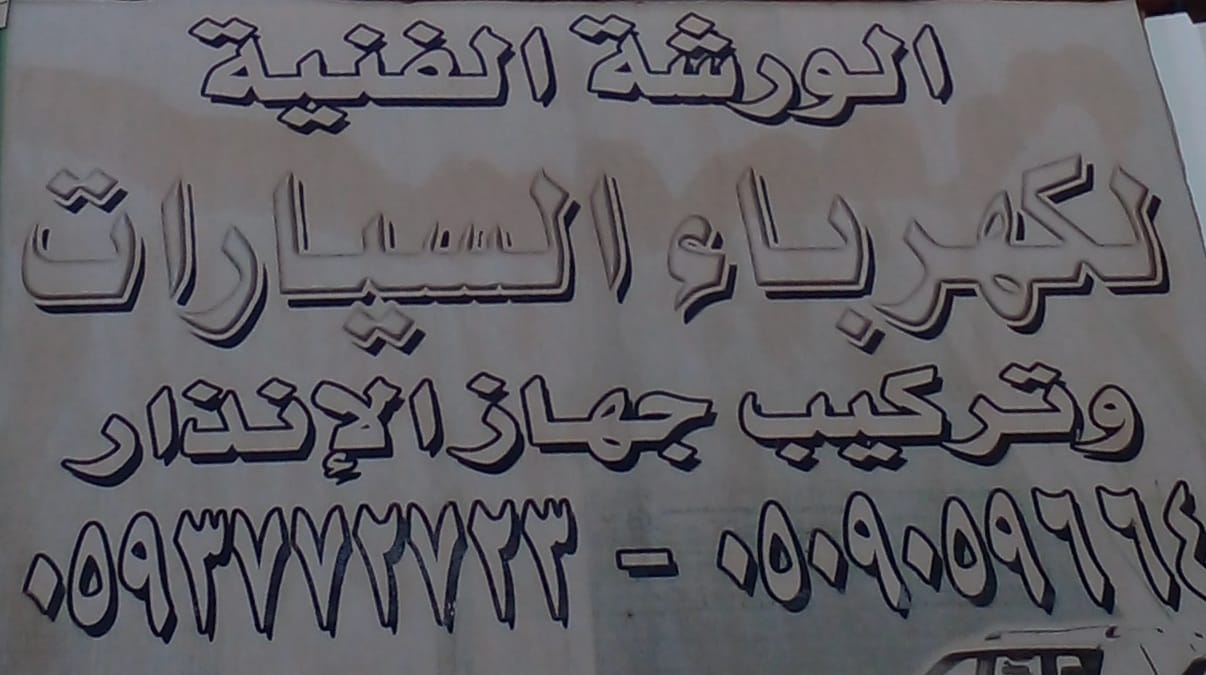 الورشة الفنية
لكهرباء السيارات
وتركيب جهاز الإنذار
٠٥٠٩٠٥٩٦٦٤ - ٠٥٩٣٧٧٢٧٢٣